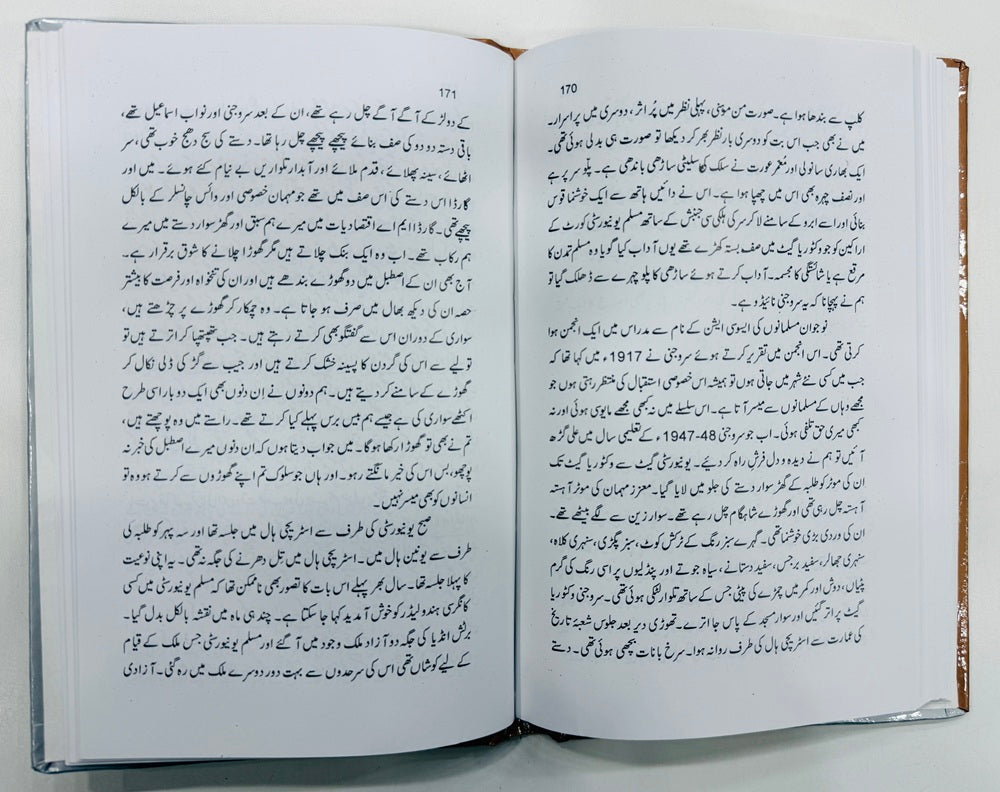 170
کلپ سے بندھا ہوا ہے۔ صورت من موہنی، پہلی نظر میں پُر اثر، دوسری میں پراسرار۔
میں نے بھی جب اس بت کو دوسری بار نظر بھر کر دیکھا تو صورت ہی بدلی ہوئی تھی۔
ایک بھاری سانولی اور معمر عورت نے سلک کی سلیٹی ساڑھی باندھی ہے۔ پلّو سر پر ہے
اور نصف چہرہ بھی اس میں چھپا ہوا ہے۔ اس نے دائیں ہاتھ سے ایک خوشنما قوس
بنائی اور اسے ابرو کے سامنے لا کر سر کی ہلکی سی جنبش کے ساتھ مسلم یونیورسٹی کورٹ کے
اراکین کو جو وکٹوریا گیٹ میں صف بستہ کھڑے تھے یوں آداب کیا گویا وہ مسلم تمدن کا
مرقع ہے یا شائستگی کا مجسمہ۔ آداب کرتے ہوئے ساڑھی کا پلو چہرے سے ڈھلک گیا تو
ہم نے پہچانا کہ یہ سروجنی نائیڈو ہے۔
نوجوان مسلمانوں کی ایسوسی ایشن کے نام سے مدراس میں ایک انجمن ہوا
کرتی تھی۔ اس انجمن میں تقریر کرتے ہوئے سروجنی نے 1917ء میں کہا تھا کہ
جب میں کسی نئے شہر میں جاتی ہوں تو ہمیشہ اس خصوصی استقبال کی منتظر رہتی ہوں جو
مجھے وہاں کے مسلمانوں سے میسر آتا ہے۔ اس سلسلے میں نہ کبھی مجھے مایوسی ہوئی اور نہ
کبھی میری حق تلفی ہوئی۔ اب جو سروجنی 48-1947ء کے تعلیمی سال میں علی گڑھ
آئیں تو ہم نے دیدہ و دل فرشِ راہ کر دیئے۔ یونیورسٹی گیٹ سے وکٹوریا گیٹ تک
ان کی موٹر کو طلبہ کے گھڑ سوار دستے کی جلو میں لایا گیا۔ معزز مہمان کی موٹر آہستہ
آہستہ چل رہی تھی اور گھوڑے شاہگام چل رہے تھے۔ سوار زین سے لگے بیٹھے تھے۔
ان کی وردی بڑی خوشنما تھی۔ گہرے سبز رنگ کے ٹرکش کوٹ، سبز پگڑی، سنہری کلاہ،
سنہری جھالر، سفید برجس، سفید دستانے، سیاہ جوتے اور پنڈلیوں پر اسی رنگ کی گرم
پٹیاں، دوش اور کمر میں چمڑے کی پیٹی جس کے ساتھ تلوار لٹکی ہوئی تھی۔ سروجنی وکٹوریا
گیٹ پر اتر گئیں اور سوار مسجد کے پاس جا اترے۔ تھوڑی دیر بعد جلوس شعبۂ تاریخ
کی عمارت سے اسٹریچی ہال کی طرف روانہ ہوا۔ سرخ بانات بچھی ہوئی تھی۔ دستے
171
کے دو لڑکے آگے آگے چل رہے تھے، ان کے بعد سروجنی اور نواب اسماعیل تھے،
باقی دستہ دو دو کی صف بنائے پیچھے پیچھے چل رہا تھا۔ دستے کی سج دھج خوب تھی، سر
اٹھائے، سینہ پھلائے، قدم ملائے اور آبدار تلواریں بے نیام کئے ہوئے۔ میں اور
گارڈا اس دستے کی اس صف میں تھے جو مہمان خصوصی اور وائس چانسلر کے بالکل
پیچھے تھی۔ گارڈا ایم اے اقتصادیات میں میرے ہم سبق اور گھڑ سوار دستے میں میرے
ہم رکاب تھے۔ اب وہ ایک بنک چلاتے ہیں مگر گھوڑا چلانے کا شوق برقرار ہے۔
آج بھی ان کے اصطبل میں دو گھوڑے بندھے ہیں اور ان کی تنخواہ اور فرصت کا بیشتر
حصہ ان کی دیکھ بھال میں صرف ہو جاتا ہے۔ وہ چمکار کر گھوڑے پر چڑھتے ہیں،
سواری کے دوران اس سے گفتگو بھی کرتے رہتے ہیں۔ جب تھپتھپا کر اترتے ہیں تو
تولیے سے اس کی گردن کا پسینہ خشک کرتے ہیں اور جیب سے گڑ کی ڈلی نکال کر
گھوڑے کے سامنے کر دیتے ہیں۔ ہم دونوں نے اِن دنوں بھی ایک دو بار اسی طرح
اکٹھے سواری کی ہے جیسے ہم بیس برس پہلے کیا کرتے تھے۔ راستے میں وہ پوچھتے ہیں،
تم نے بھی تو گھوڑا رکھا ہوگا۔ میں جواب دیتا ہوں کہ ان دنوں میرے اصطبل کی خبر نہ
پوچھو، بس اس کی خیر مانگتے رہو۔ اور ہاں جو سلوک تم اپنے گھوڑوں سے کرتے ہو وہ تو
انسانوں کو بھی میسر نہیں۔
صبح یونیورسٹی کی طرف سے اسٹریچی ہال میں جلسہ تھا اور سہ پہر کو طلبہ کی
طرف سے یونین ہال میں۔ اسٹریچی ہال میں تل دھرنے کی جگہ نہ تھی۔ یہ اپنی نوعیت
کا پہلا جلسہ تھا۔ سال بھر پہلے اس بات کا تصور بھی ناممکن تھا کہ مسلم یونیورسٹی میں کسی
کانگرسی ہندو لیڈر کو خوش آمدید کہا جا سکتا ہے۔ چند ہی ماہ میں نقشہ بالکل بدل گیا۔
برٹش انڈیا کی جگہ دو آزاد ملک وجود میں آ گئے اور مسلم یونیورسٹی جس ملک کے قیام
کے لیے کوشاں تھی اس کی سرحدوں سے بہت دور دوسرے ملک میں رہ گئی۔ آزادی